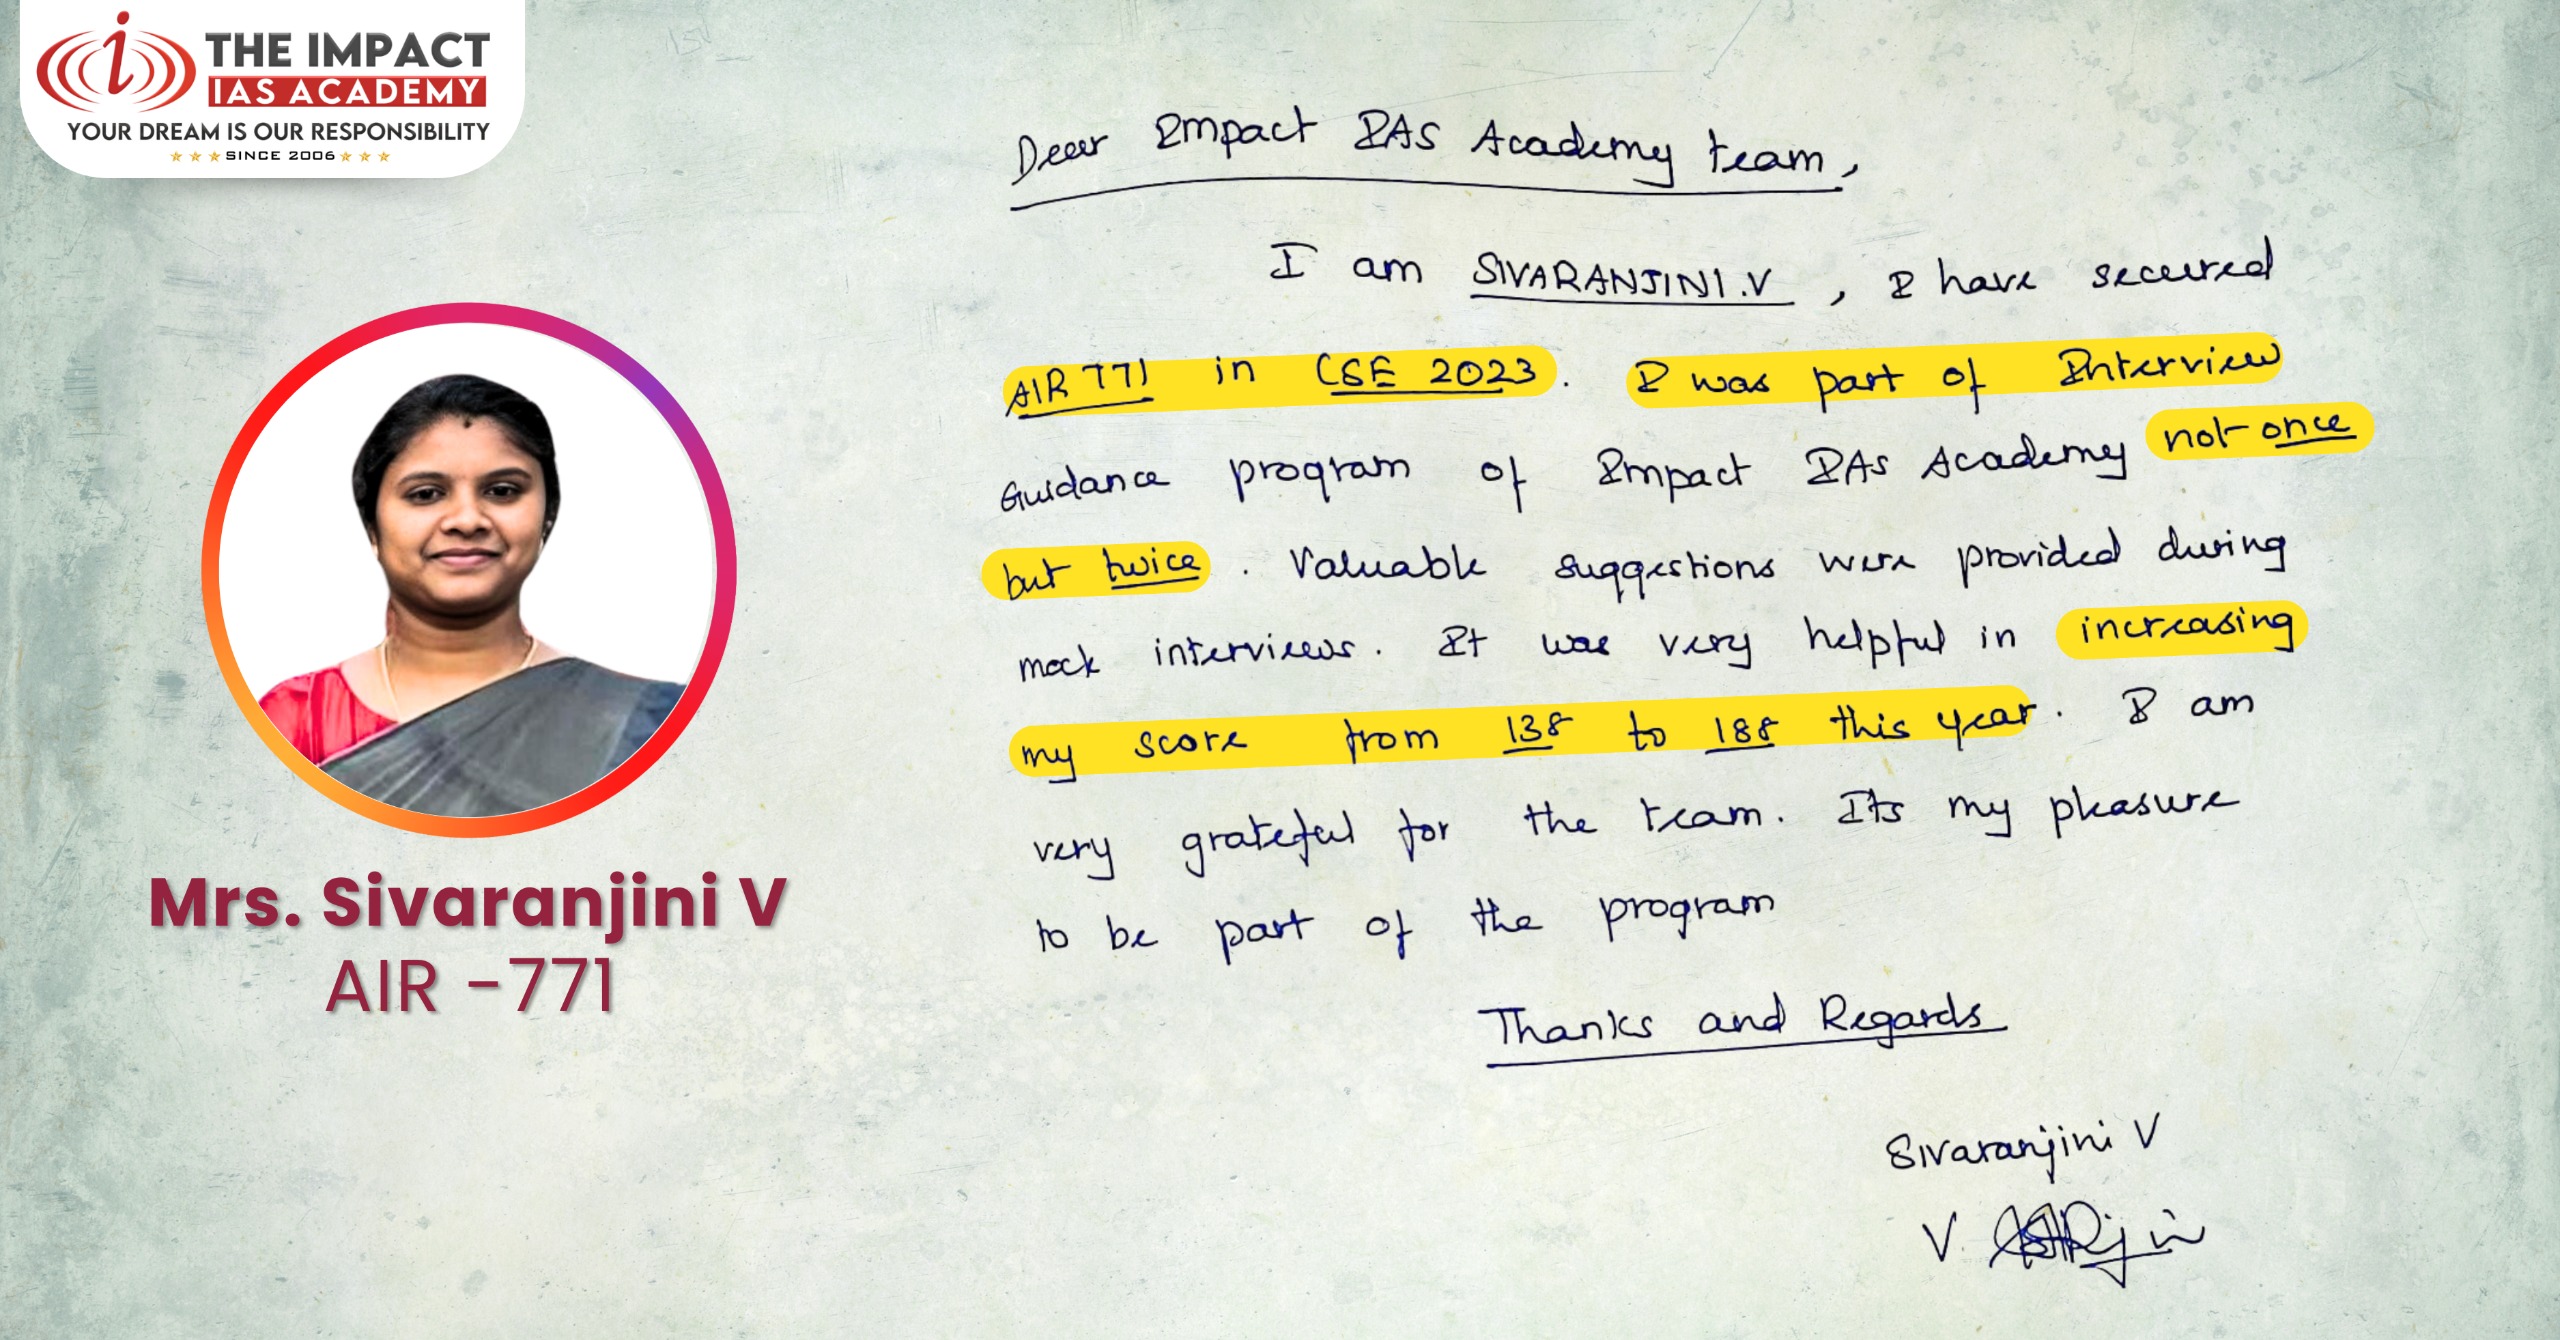 THE IMPACT
IAS ACADEMY
YOUR DREAM IS OUR RESPONSIBILITY
SINCE 2006
Mrs. Sivaranjini V
AIR -771
Dear Impact IAS Academy team,
I am SIVARANJINI.V, I have secured
AIR 771 in CSE 2023. I was part of Interview
Guidance program of Impact IAS Academy not once
but twice. Valuable suggestions were provided during
mock interviews. It was very helpful in increasing
my score from 138 to 188 this year. I am
very grateful for the team. Its my pleasure
to be part of the program
Thanks and Regards
Sivaranjini V
V.